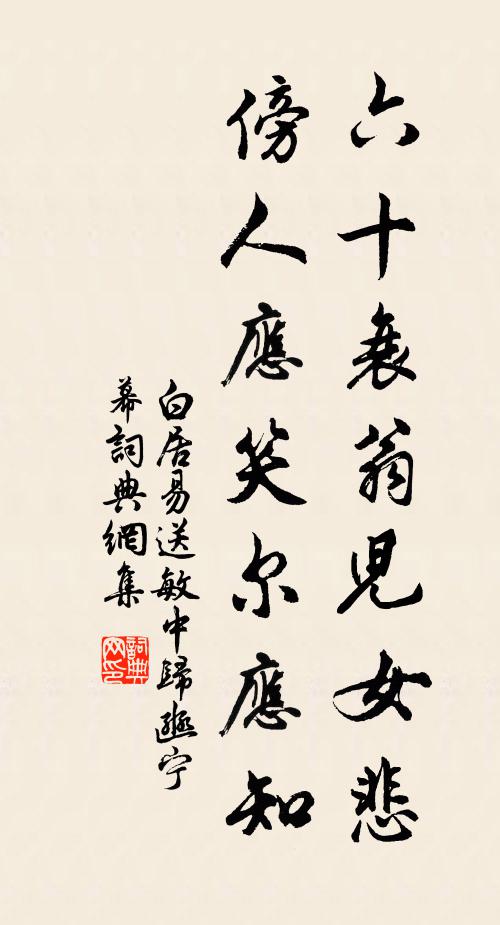 六十衰翁兒女悲
傍人應笑尔應知
白居易送敏中歸豳宁
幕詞典網集
詞典網印